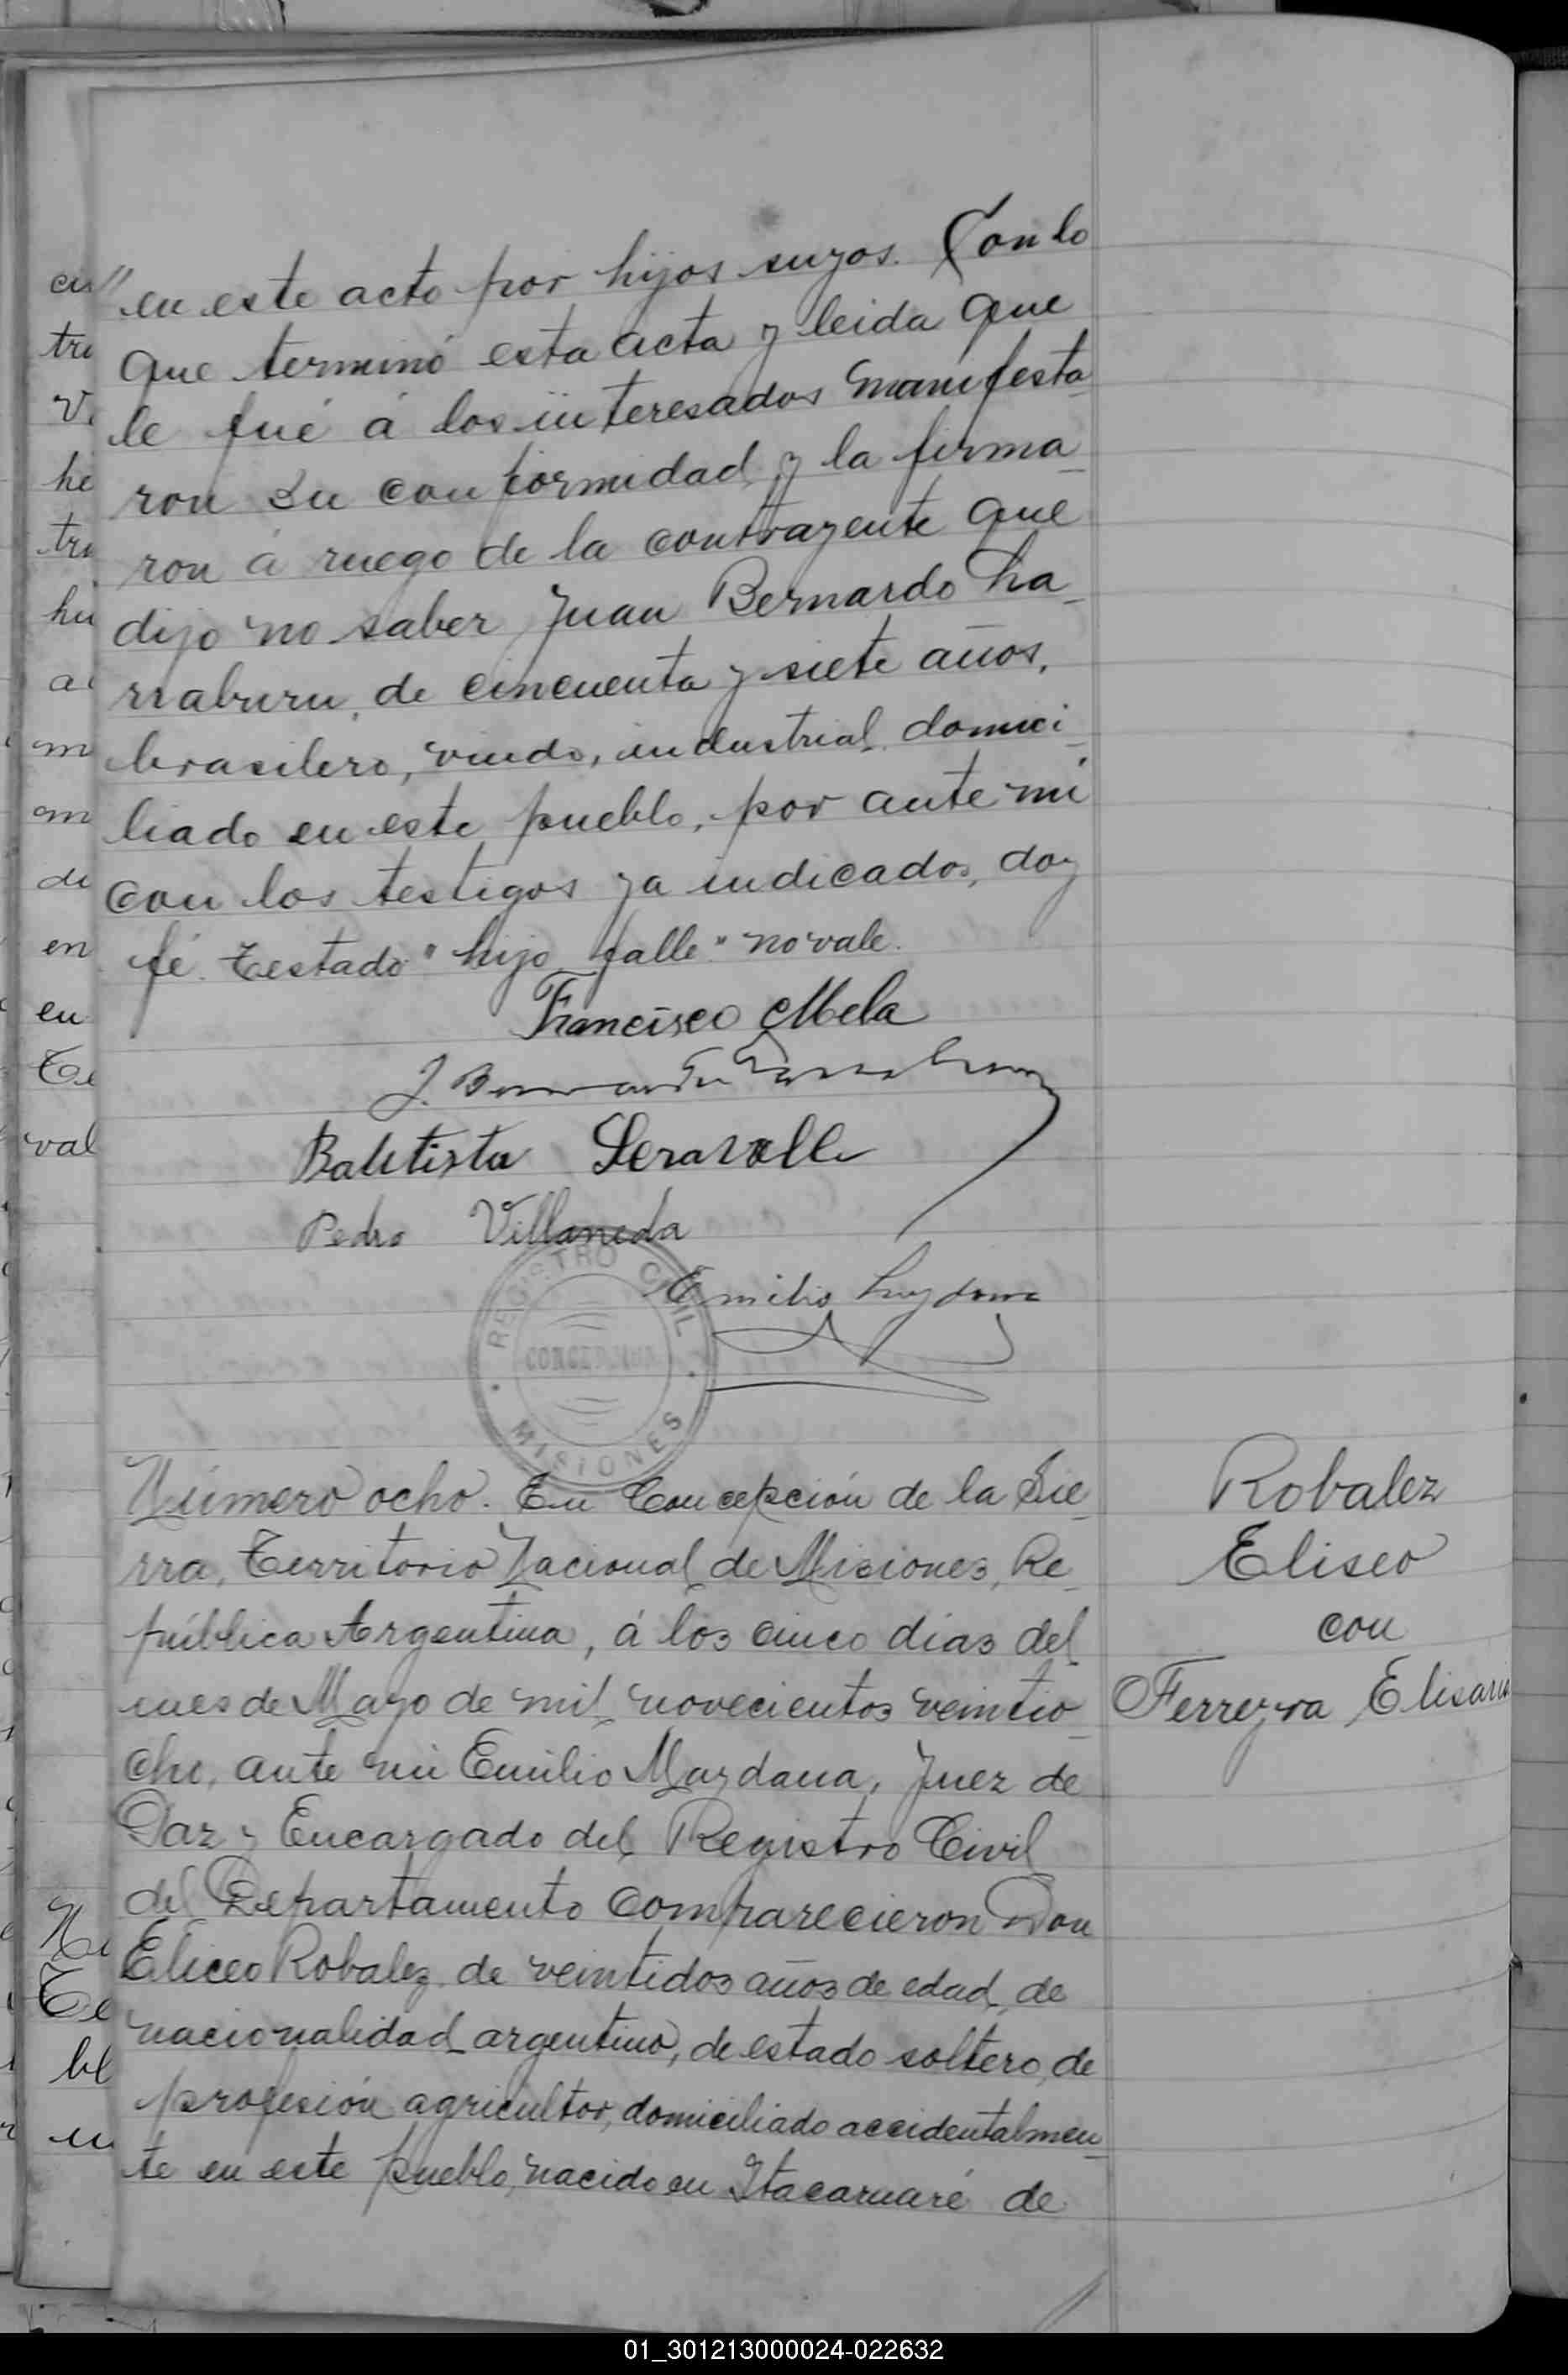 en este acto por hijos suyos. Con lo
que terminó esta acta y leida que
le fué á los interesados manifesta
ron su conformidad y la firma_
ron á ruego de la contrayente que
dijo no saber Juan Bernardo La_
rraburu, de cincuenta y siete años,
brasilero, viudo, industrial, domici_
liado en este pueblo, por ante mi
con los testigos ya indicados, doy
fé. Testado "hijo falle" no vale.
Francisco Mela
J. Bernardo Larraburu
Bautista
Pedro Villaneda
Emilio
REGISTRO CIVIL
CONCEPCION
MISIONES
Número ocho. En Concepción de la Sie_
rra, Territorio Nacional de Misiones, Re_
pública Argentina, á los cinco dias del
mes de Mayo de mil novecientos veintio_
cho, ante mi Emilio Maydana, Juez de
Paz y Encargado del Registro Civil
del Departamento comparecieron Don
Eliceo Robalez de veintidos años de edad, de
nacionalidad argentino, de estado soltero, de
profesión agricultor, domiciliado accidentalmen_
te en este pueblo, nacido en Itacaruaré de
Robalez
Eliseo
con
Ferreyra Elisaria
cu
tr
he
hu
a
m
am
di
en
en
Te
val
Te
bl
01_301213000024-022632